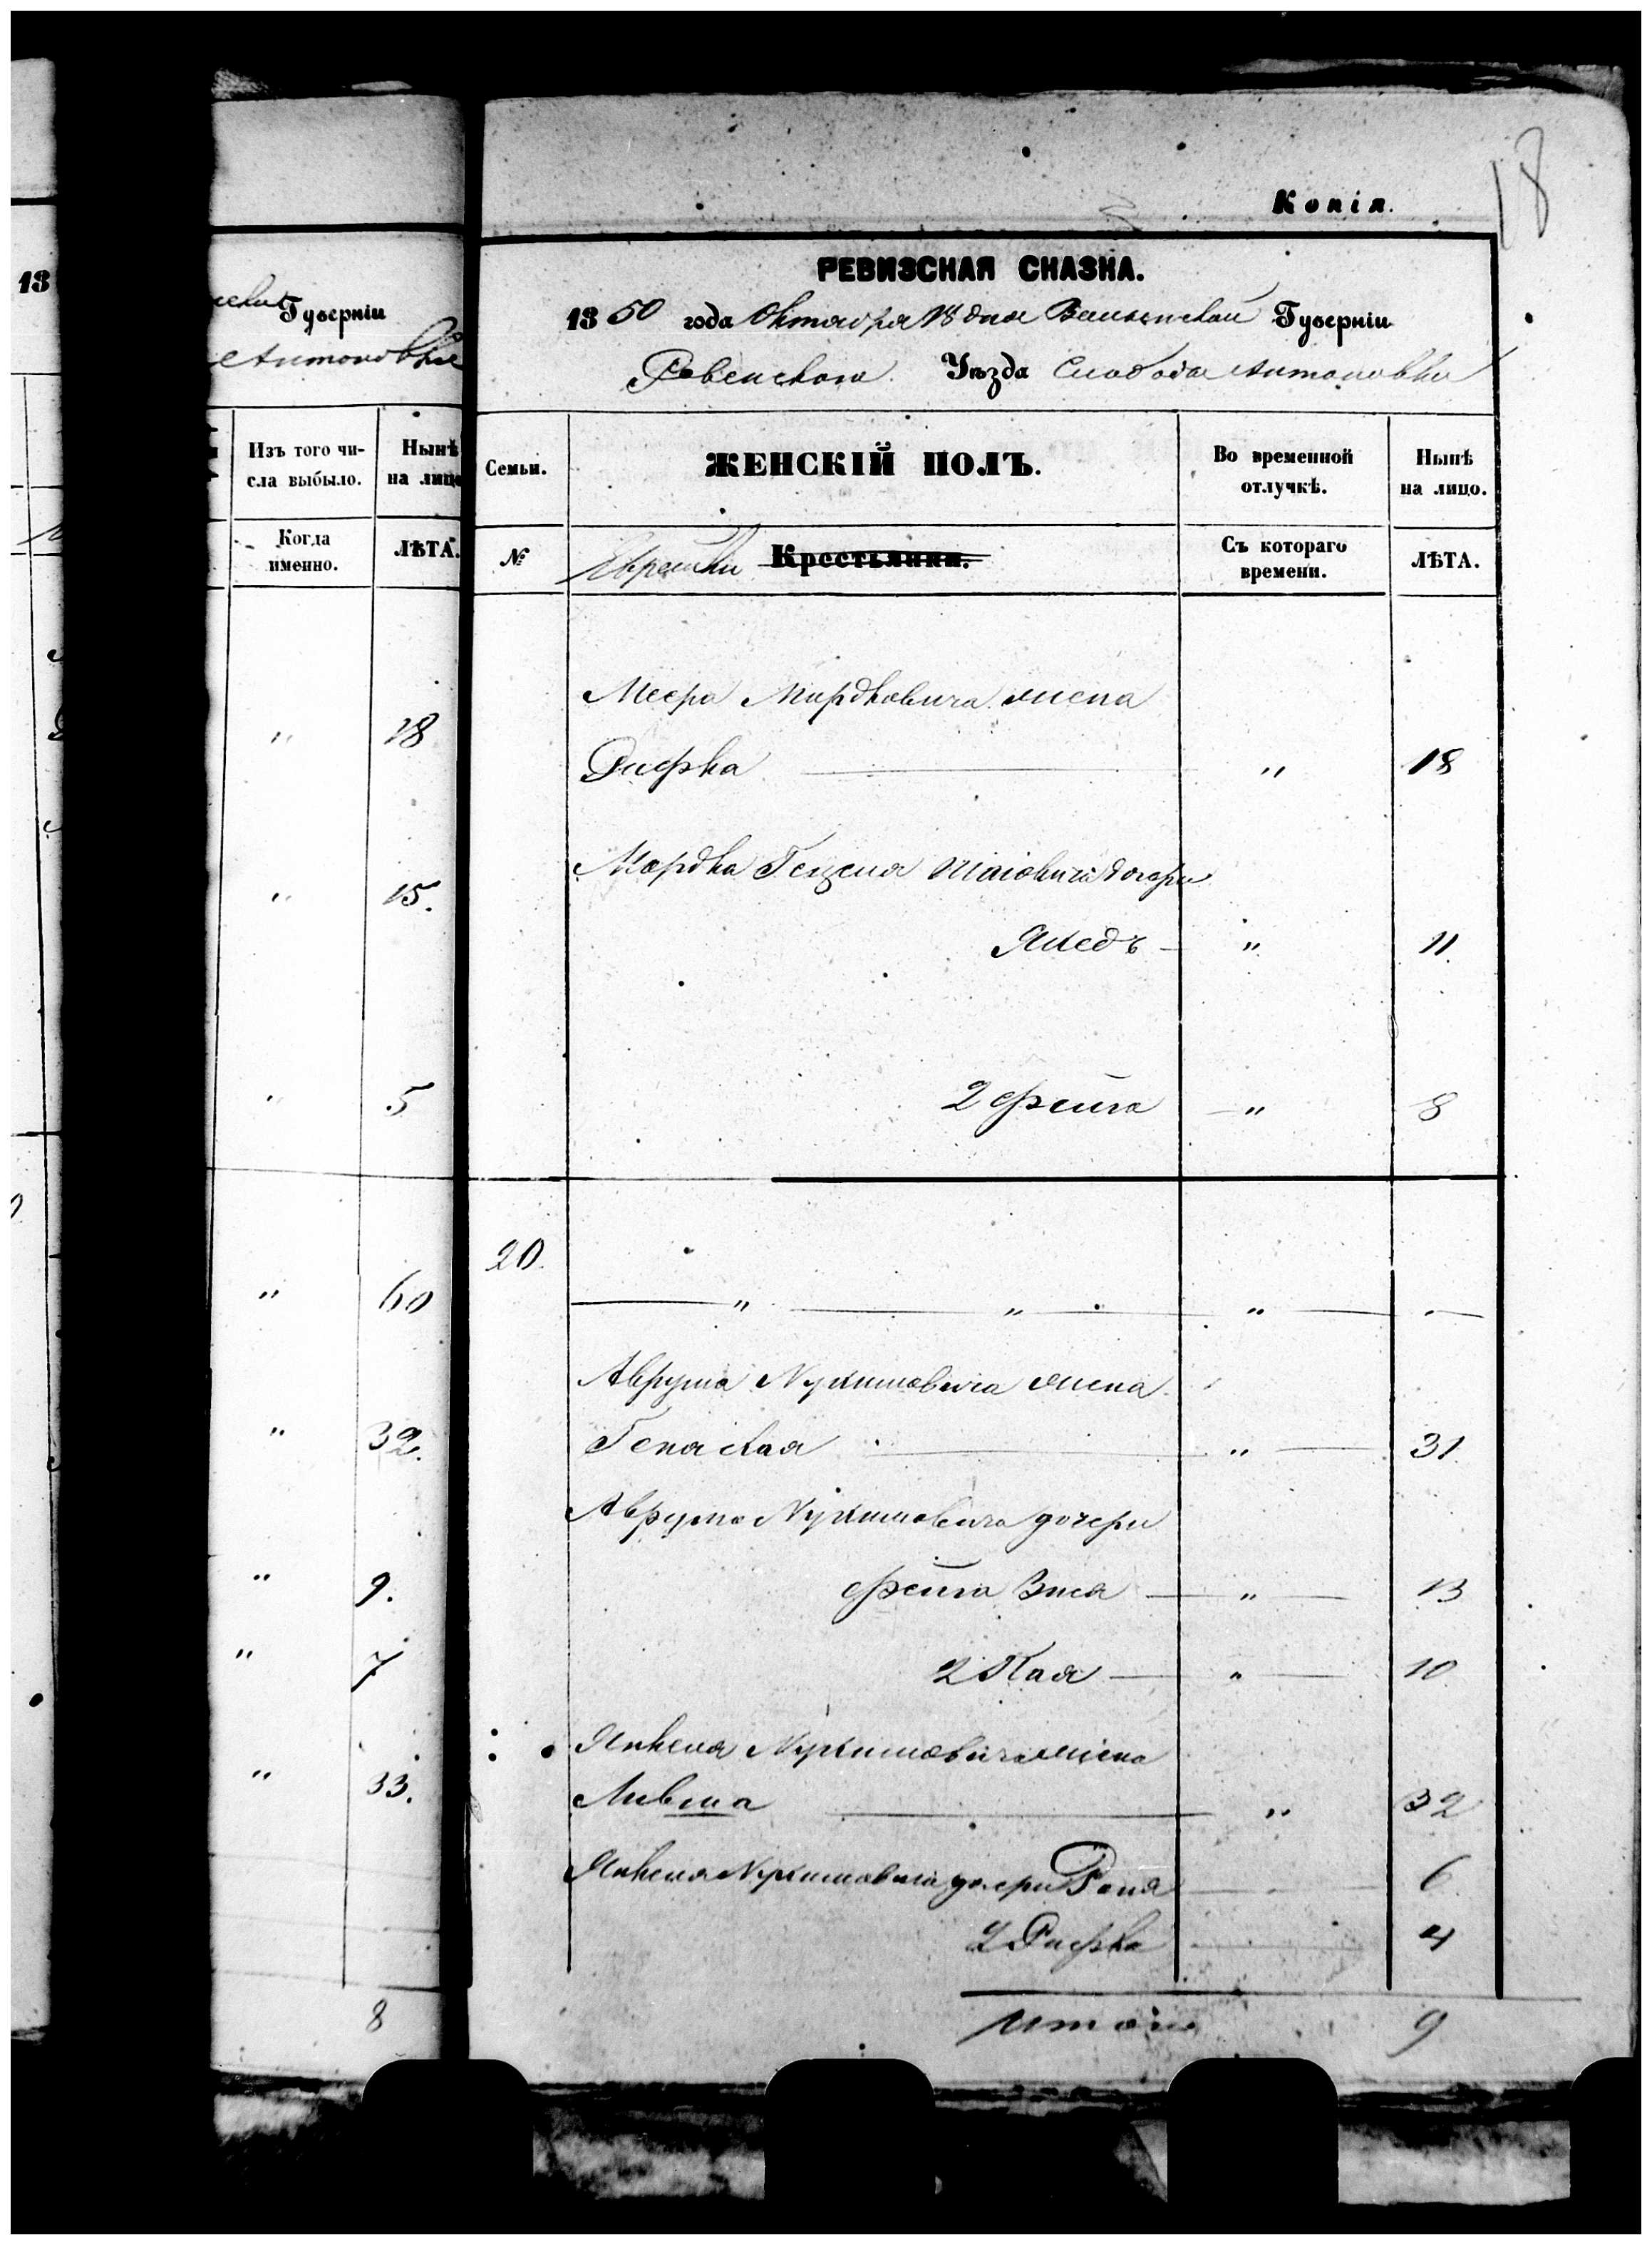 13
Губерніи
Антоновки
Изъ того чи-
сла выбыло.
Нынѣ
на лицо
Когда
именно.
ЛѢТА.
" 18
" 15.
" 5
" 60
" 32.
" 9.
" 7
" 33.
8
18
Копія.
РЕВИЗСКАЯ СКАЗКА.
1850 года Октября 18 дня Волынской Губерніи
Ровенскаго Уѣзда Слобода Антоновки
Семьи.
ЖЕНСКІЙ ПОЛЪ.
Во временной
отлучкѣ.
Нынѣ
на лицо.
№
Еврейки Крестьянки.
Съ котораго
времени.
ЛѢТА.
Меера Мордковича жена
Рифка " 18
Мордка Гецеля Шаіовича дочери
" 11
2 Фейга " 8
20.
" " "
Аврума Нухимовича жена
" 31
Аврума Нухимовича дочери
Фейга Зися " 13
2 Хая " 10
Янкеля Нухимовича жена
Ливша " 32
Янкеля Нухимовича дочери Рейзя 6
2 Рифка 4
Итого 9